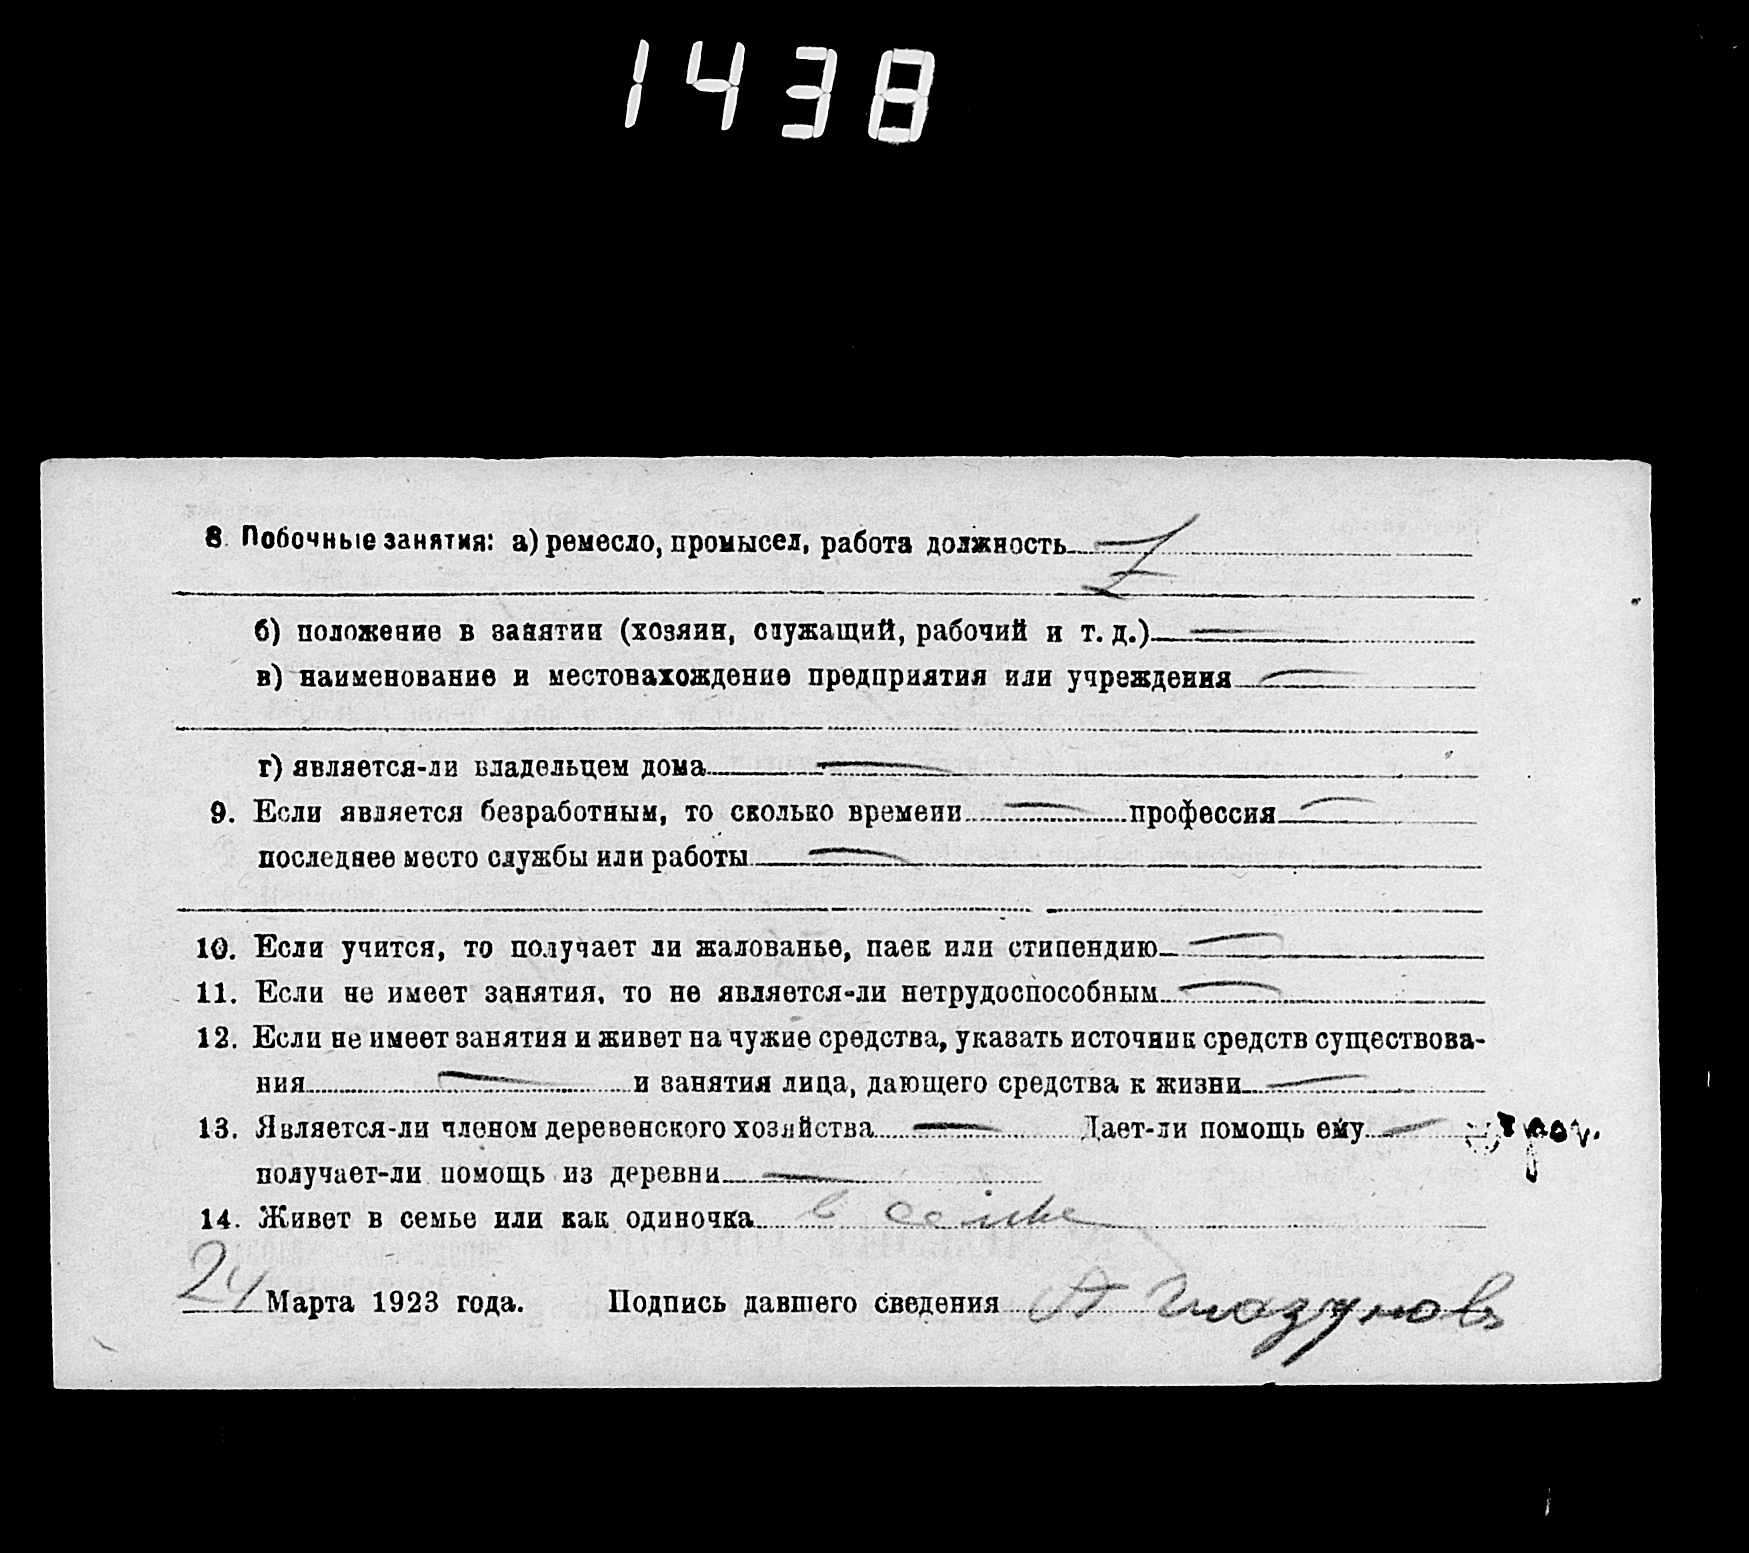 1438
8. Побочные занятия: а) ремесло, промысел, работа должность
б) положение в занятии (хозяин, служащий, рабочий и т. д.) —
в) наименование и местонахождение предприятия или учреждения —
г) является-ли владельцем дома —
9. Если является безработным, то сколько времени — профессия —
последнее место службы или работы —
10. Если учится, то получает ли жалованье, паек или стипендию —
11. Если не имеет занятия, то не является-ли нетрудоспособным —
12. Если не имеет занятия и живет на чужие средства, указать источник средств существова-
ния — и занятия лица, дающего средства к жизни —
13. Является-ли членом деревенского хозяйства — Дает-ли помощь ему —
получает-ли помощь из деревни —
14. Живет в семье или как одиночка в семье
24 Марта 1923 года. Подпись давшего сведения А Глазунов